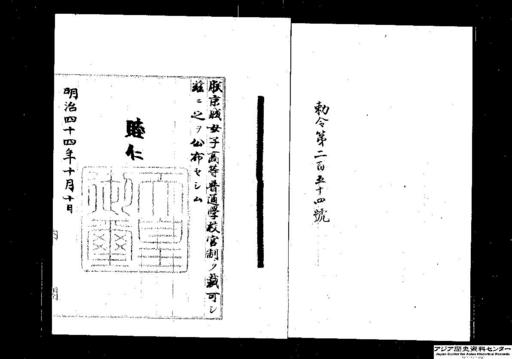 勅令第二百五十四號
朕京城女子高等普通學校官制ヲ裁可シ
茲ニ之ヲ公布セシム
睦仁
明治四十四年十月十日
アジア歴史資料センター
Japan Center for Asian Historical Records